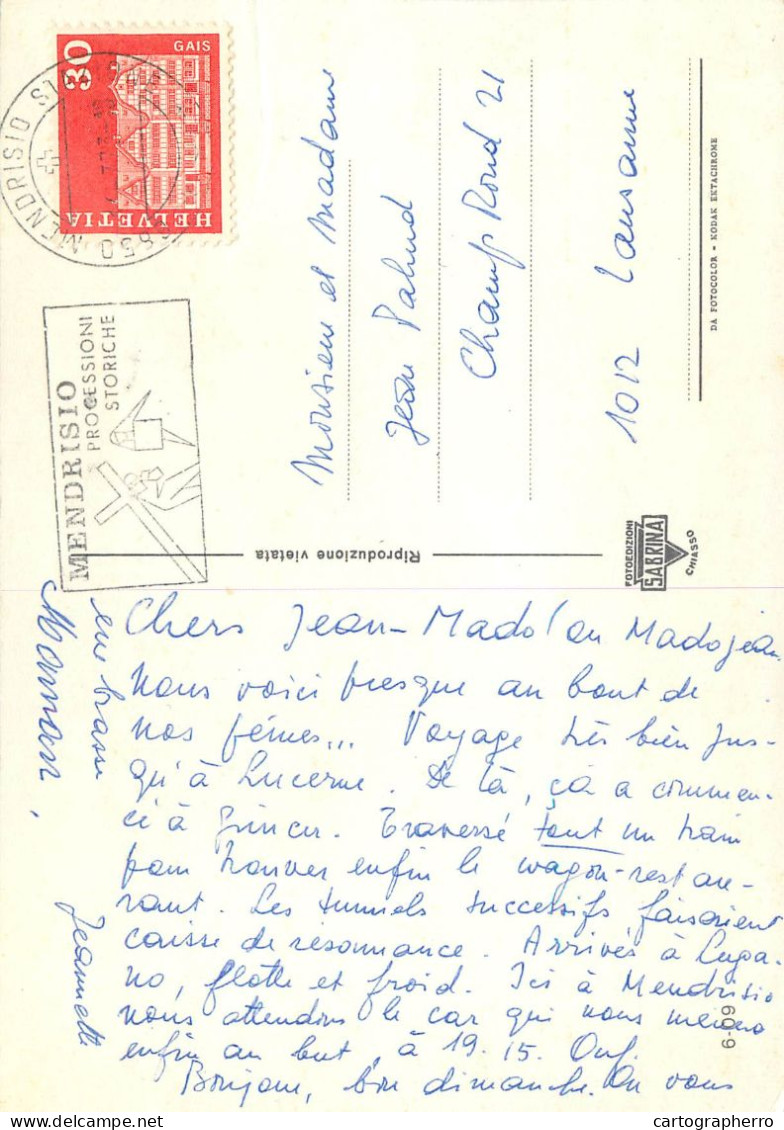 30
GAIS
HELVETIA
6850 MENDRISIO
MENDRISIO
PROCESSIONI
STORICHE
Monsieur et Madame
Jean Pahud
Champ Rond 21
1012 Lausanne
DA FOTOCOLOR - KODAK EKTACHROME
Riproduzione vietata
FOTOEDIZIONI
SABRINA
CHIASSO
Chers Jean-Mado! ou Madojean
Nous voici presque au bout de
nos peines... Voyage très bien jus-
qu'à Lucerne. De là, ça a commen-
cé à grincer. Traversé tout un train
pour trouver enfin le wagon-restau-
rant. Les tunnels successifs faisaient
caisse de résonnance. Arrivés à Luga-
no, flotte et froid. Ici à Mendrisio
nous attendons le car qui nous mènera
enfin au but, à 19.15. Ouf.
Bonjour, bon dimanche. On vous
embrasse
Maman,
Jeannette
6-09
cartographerro